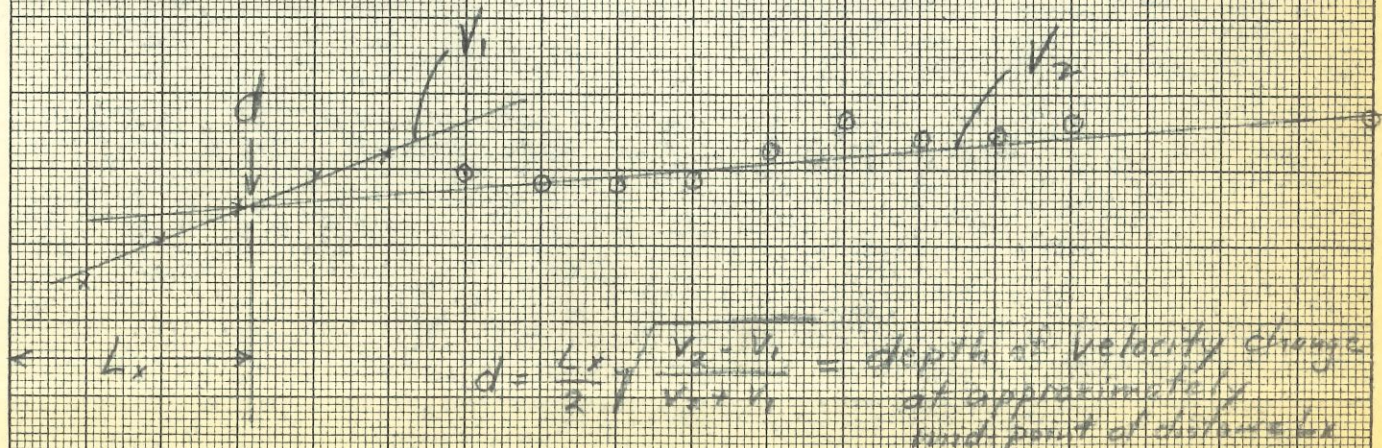 V₁
V₂
d
Lₓ
d = Lₓ/2 √(V₂ - V₁ / V₂ + V₁) = depth of velocity change
at approximately
mid-point of distance Lₓ